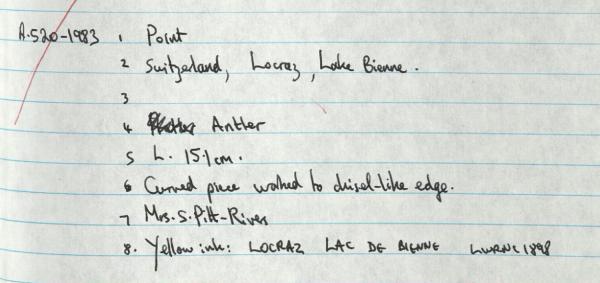 A.520-1983 1 Point
2 Switzerland, Locraz, Lake Bienne.
3
4 Antler
5 L. 15.1cm.
6 Curved piece worked to chisel-like edge.
7 Mrs. S. Pitt-Rivers
8. Yellow ink: LOCRAZ LAC DE BIENNE